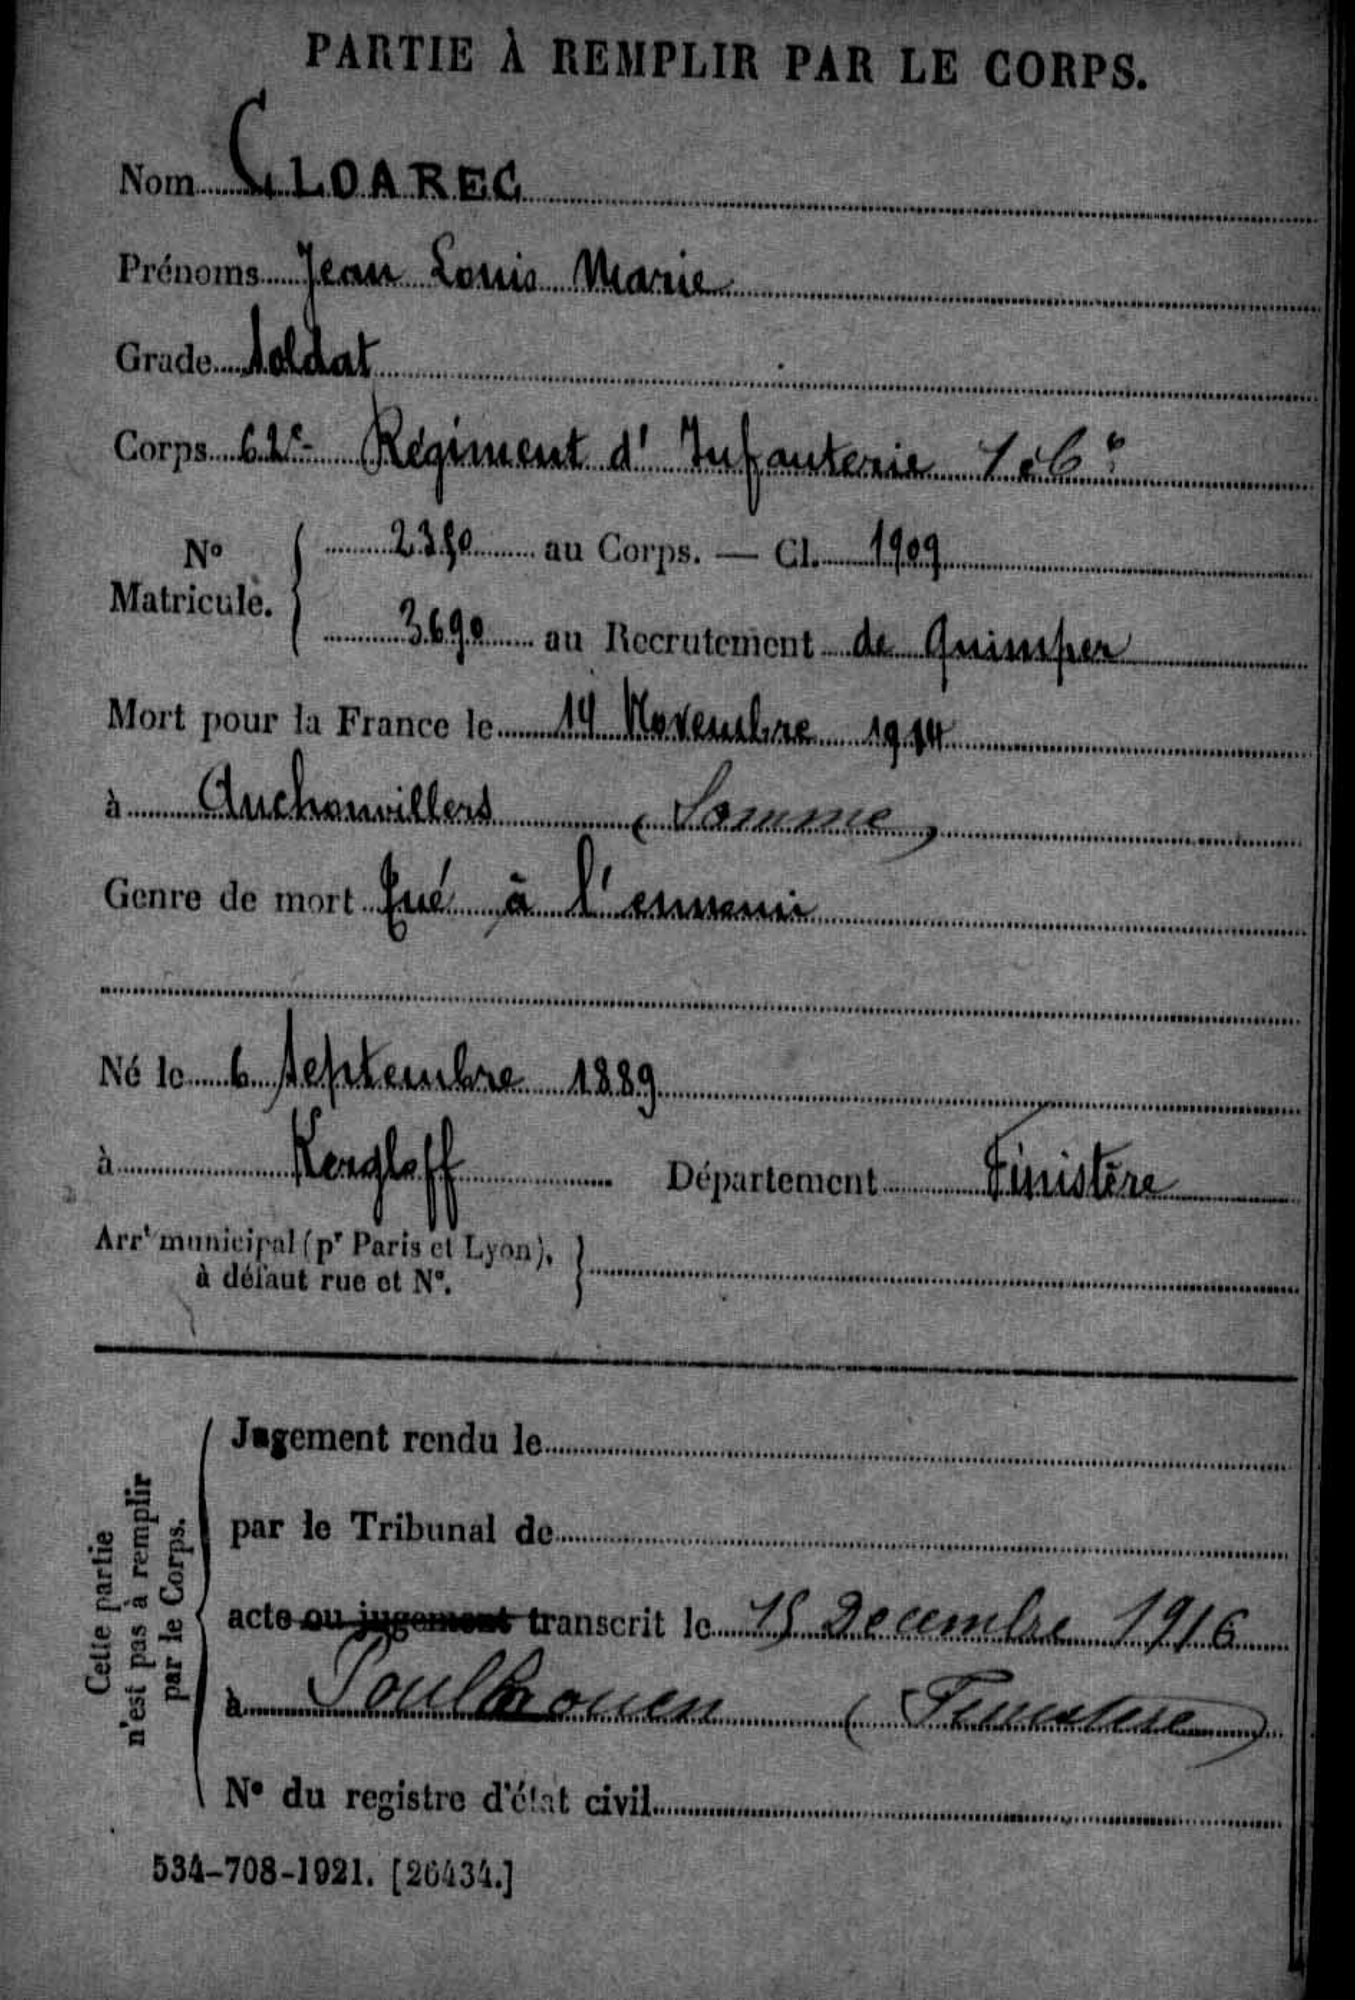 PARTIE À REMPLIR PAR LE CORPS.
Nom CLOAREC
Prénoms Jean Louis Marie
Grade Soldat
Corps 62e Régiment d'Infanterie
No Matricule. 2350 au Corps. — Cl. 1909
3690 au Recrutement de Quimper
Mort pour la France le 14 Novembre 1914
à Auchonvillers (Somme)
Genre de mort Tué à l'ennemi
Né le 6 Septembre 1889
à Kergloff Département Finistère
Arrt municipal (pr Paris et Lyon),
à défaut rue et No.
Cette partie
n'est pas à remplir
par le Corps.
Jugement rendu le
par le Tribunal de
acte ou jugement transcrit le 15 Decembre 1916
à Poullaouen (Finistere)
No du registre d'état civil
534-708-1921. [26434.]